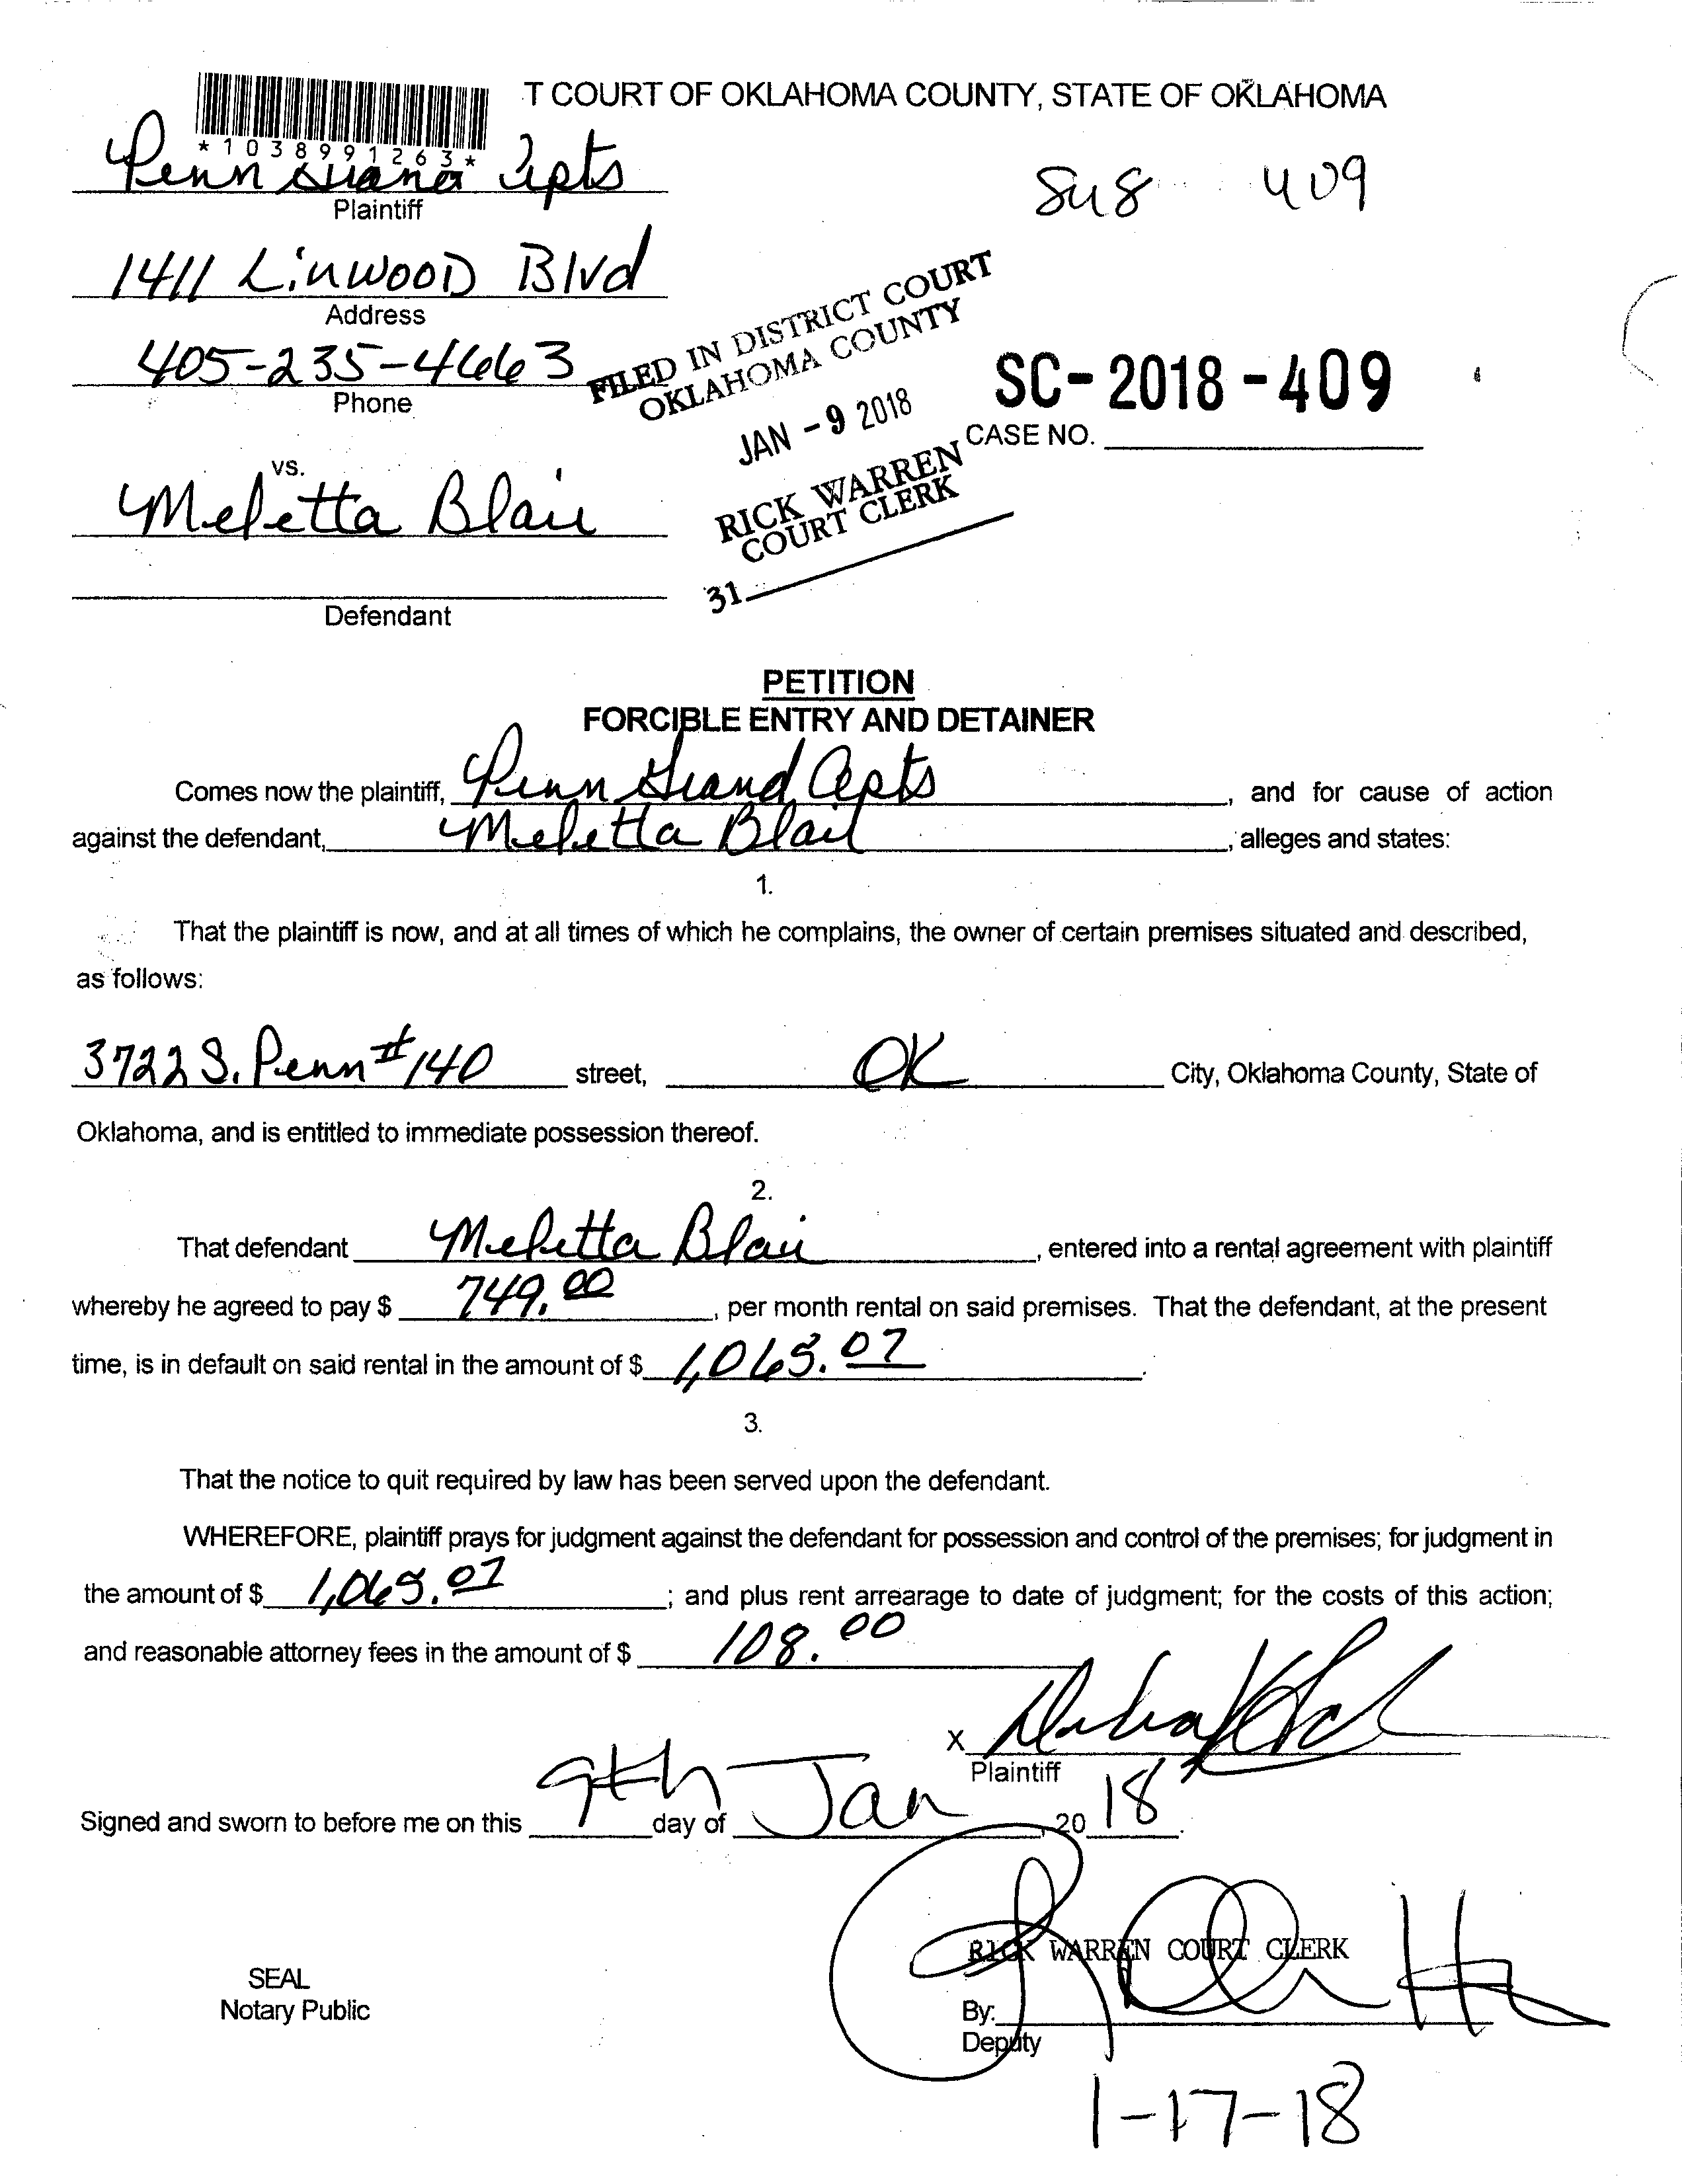 T COURT OF OKLAHOMA COUNTY, STATE OF OKLAHOMA
*1038991263*
Penn Grand Apts
Plaintiff
409
1411 Linwood Blvd
Address
405-235-4663
Phone
FILED IN DISTRICT COURT
OKLAHOMA COUNTY
JAN - 9 2018
RICK WARREN
COURT CLERK
31
SC-2018-409
CASE NO.
vs.
Meletta Blair
Defendant
PETITION
FORCIBLE ENTRY AND DETAINER
Comes now the plaintiff, Penn Grand Apts, and for cause of action
against the defendant, Meletta Blair, alleges and states:
1.
That the plaintiff is now, and at all times of which he complains, the owner of certain premises situated and described,
as follows:
3722 S. Penn #140 street, OK City, Oklahoma County, State of
Oklahoma, and is entitled to immediate possession thereof.
2.
That defendant Meletta Blair, entered into a rental agreement with plaintiff
whereby he agreed to pay $ 749.00, per month rental on said premises. That the defendant, at the present
time, is in default on said rental in the amount of $
3.
That the notice to quit required by law has been served upon the defendant.
WHEREFORE, plaintiff prays for judgment against the defendant for possession and control of the premises; for judgment in
the amount of $ ; and plus rent arrearage to date of judgment; for the costs of this action;
and reasonable attorney fees in the amount of $ 108.00
X
Plaintiff
Signed and sworn to before me on this 9th day of Jan, 20 18.
RICK WARREN COURT CLERK
SEAL
Notary Public
By:
Deputy
1-17-18